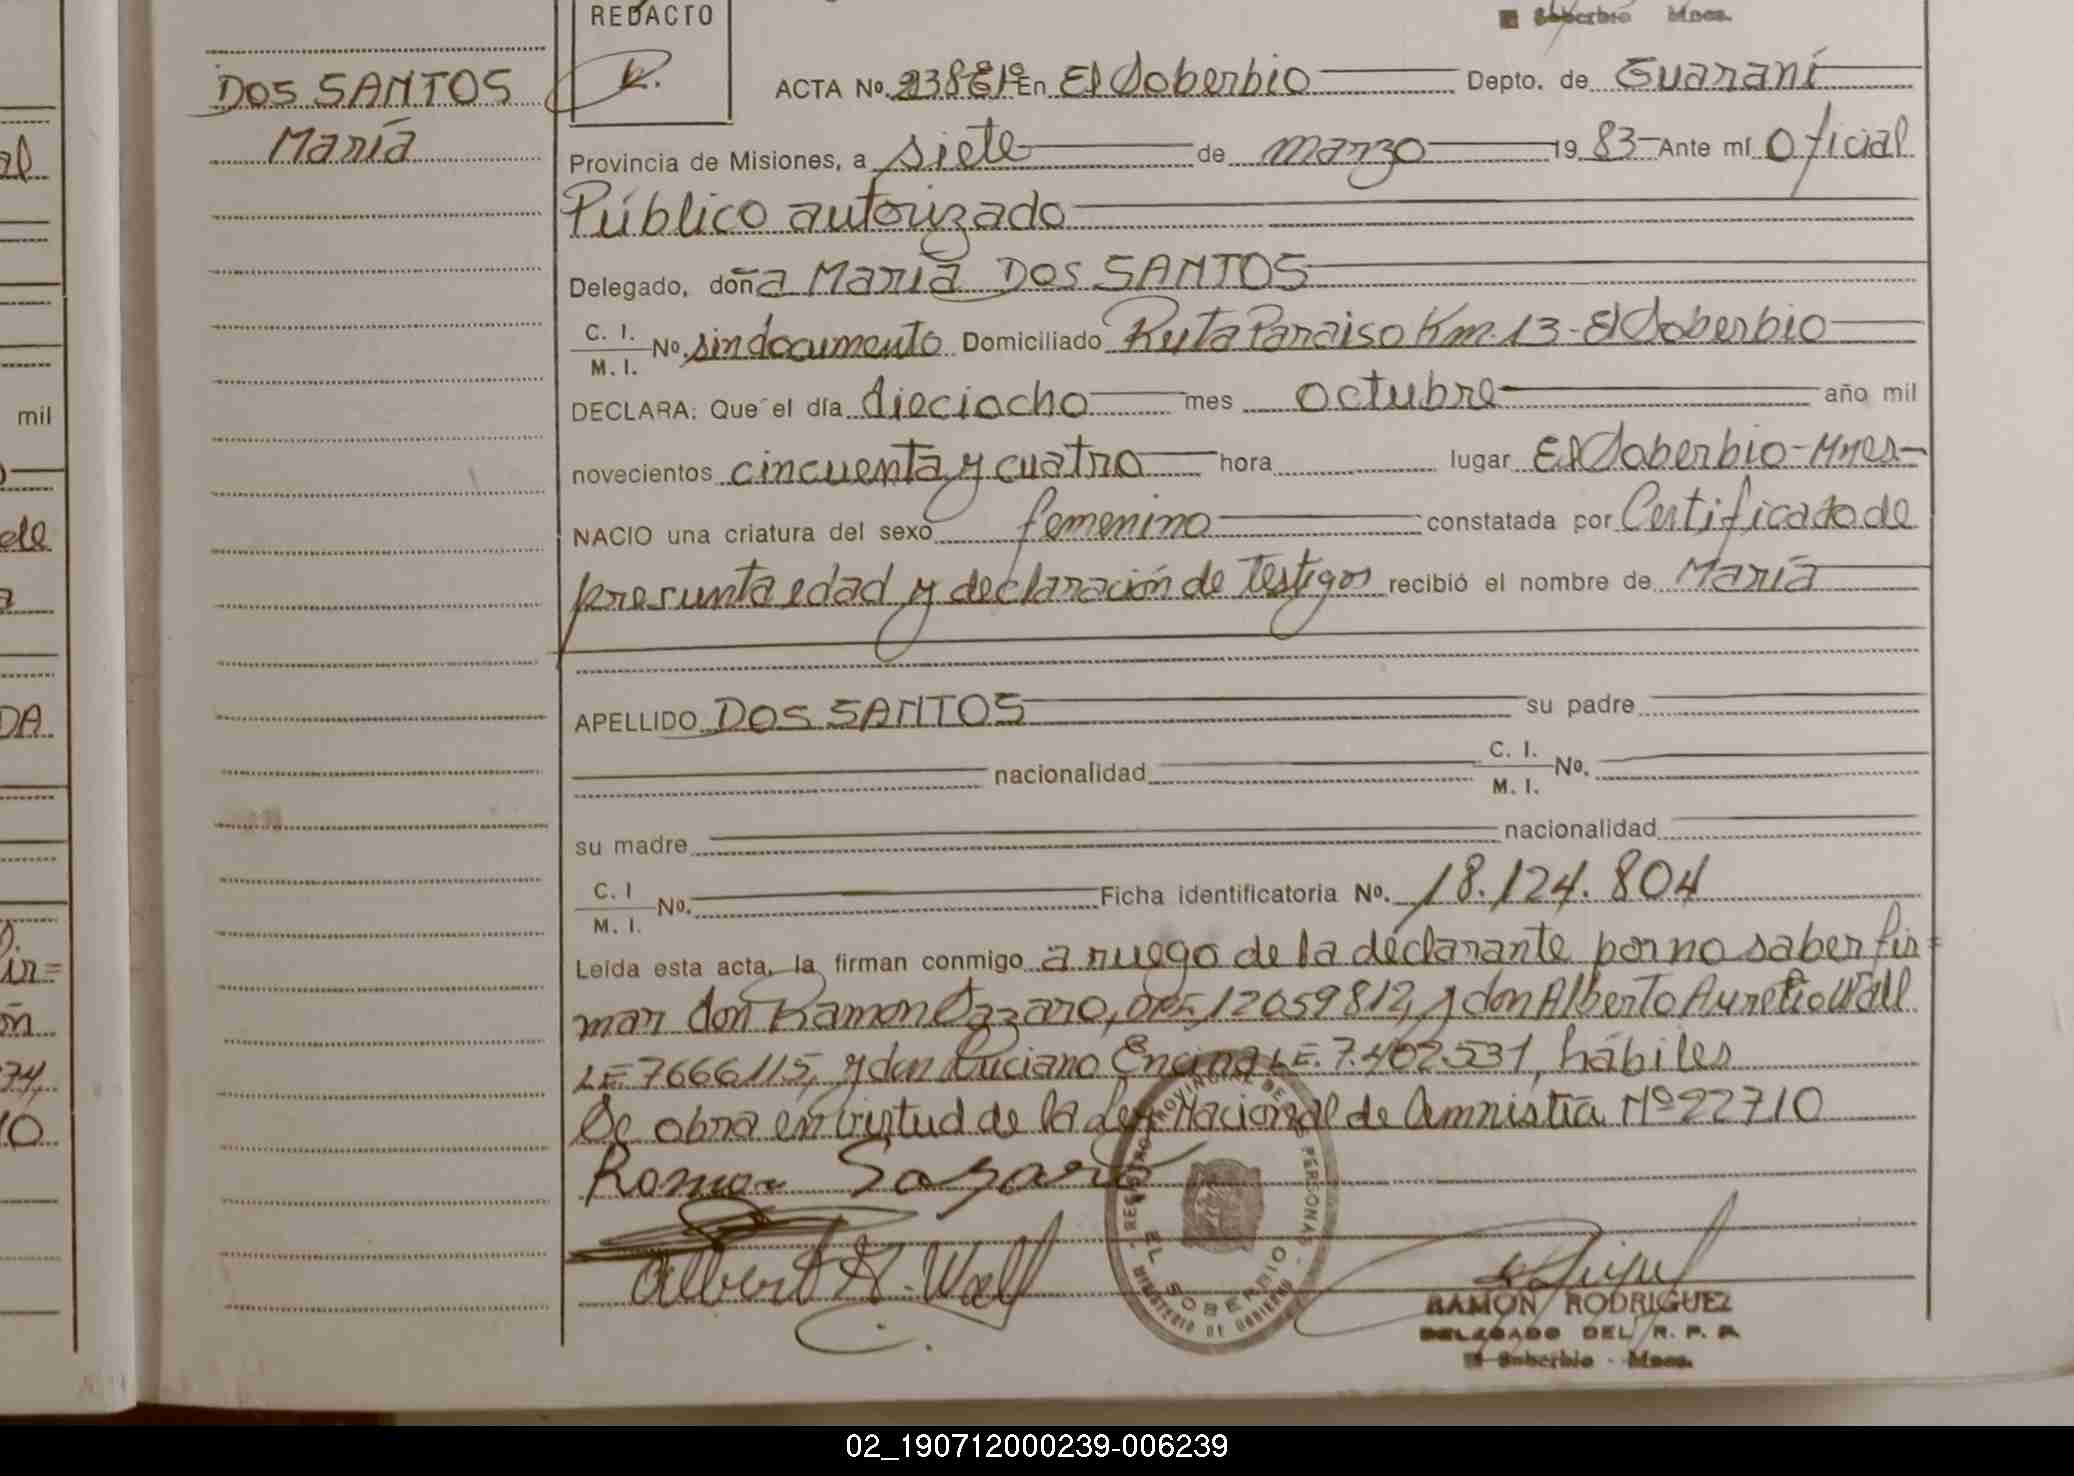 REDACTO
El Soberbio Mnes.
DOS SANTOS
María
ACTA No. En El Soberbio Depto. de Guaraní
Provincia de Misiones, a siete de marzo 19 83 Ante mí Oficial
Público autorizado
Delegado, doña María DOS SANTOS
C. I.
M. I. No. sin documento Domiciliado Ruta Paraiso Km. 13 - El Soberbio
DECLARA: Que el día dieciocho mes octubre año mil
novecientos cincuenta y cuatro hora lugar El Soberbio - Mnes -
NACIO una criatura del sexo femenino constatada por Certificado de
presunta edad y declaración de testigos recibió el nombre de María
APELLIDO DOS SANTOS su padre
nacionalidad C. I. No.
M. I.
su madre nacionalidad
C. I No. Ficha identificatoria No. 18.124.804
M. I.
Leída esta acta, la firman conmigo a ruego de la declarante por no saber fir=
mar don Ramon 12059812, y don Alberto Aurelio Wall
LE 7666115, y don Luciano Encina LE. 7.402.531, hábiles
Se obra en virtud de la Ley Nacional de Amnistía Nº 22710
Alberto A. Wall
REGISTRO PROVINCIAL DE LAS PERSONAS
EL SOBERBIO
MINISTERIO DE GOBIERNO
RAMON RODRIGUEZ
DELEGADO DEL R. P. P.
El Soberbio - Mnes.
mil
02_190712000239-006239